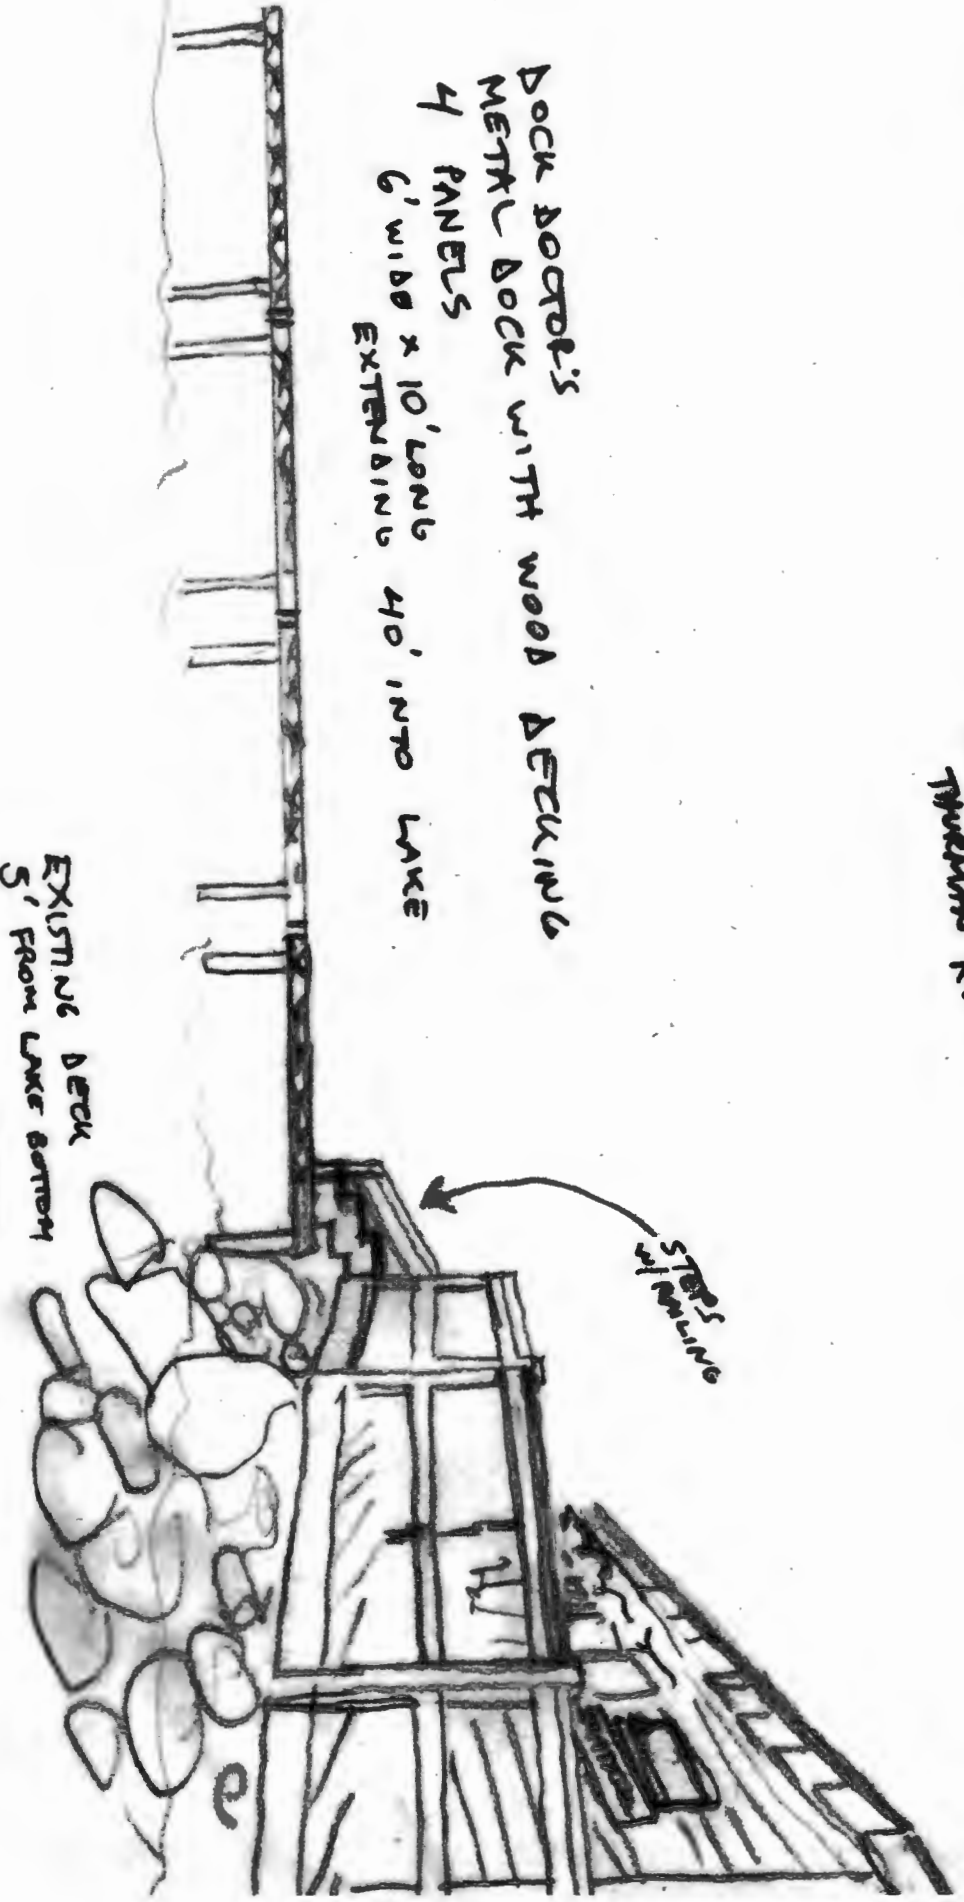 DOCK DOCTOR'S
METAL DOCK WITH WOOD DECKING
4 PANELS
6' WIDE x 10' LONG
EXTENDING 40' INTO LAKE
STEPS
w/ RAILING
EXISTING DECK
5' FROM LAKE BOTTOM